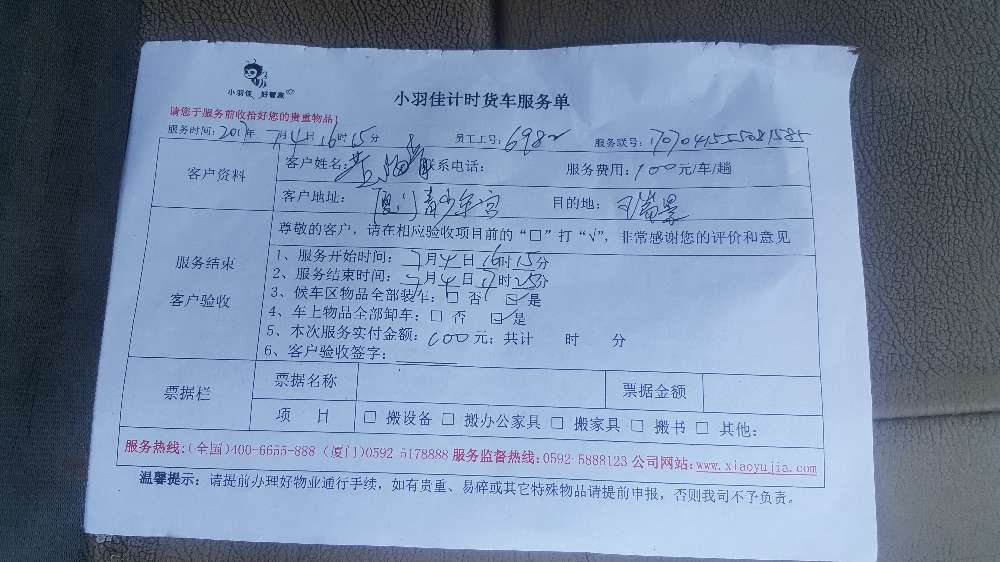 小羽佳 好管家
小羽佳计时货车服务单
请您于服务前收拾好您的贵重物品!
服务时间:2017年7月4日16时15分 员工工号:6982 服务联号:
客户资料 客户姓名: 联系电话: 服务费用:100元/车/趟
客户地址:厦门青少年宫 目的地:
尊敬的客户，请在相应验收项目前的“□”打“√”，非常感谢您的评价和意见
服务结束
客户验收
1、服务开始时间：7月4日16时15分
2、服务结束时间：7月4日 时25分
3、候车区物品全部装车：□ 否 ☑ 是
4、车上物品全部卸车：□ 否 ☑ 是
5、本次服务实付金额：100元；共计 时 分
6、客户验收签字：
票据栏 票据名称 票据金额
项 目 □ 搬设备 □ 搬办公家具 □ 搬家具 □ 搬书 □ 其他：
服务热线:(全国)400-6655-888 (厦门)0592 5178888 服务监督热线:0592-5888123 公司网站:www.xiaoyujia.com
温馨提示：请提前办理好物业通行手续，如有贵重、易碎或其它特殊物品请提前申报，否则我司不予负责。